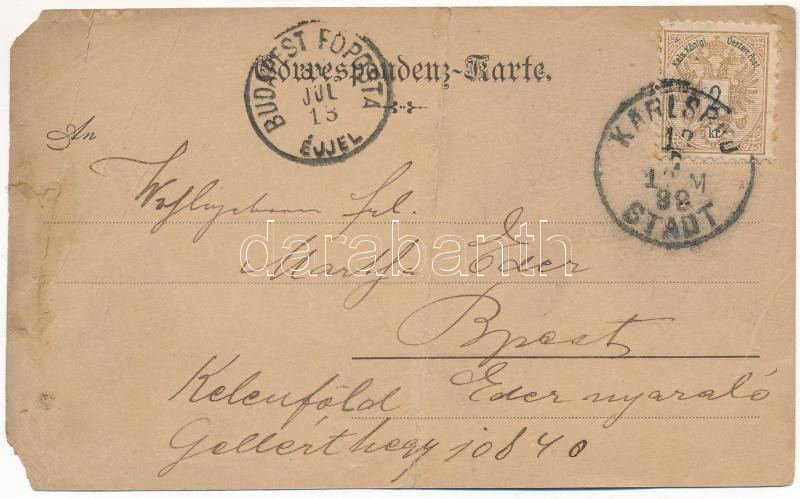 Correspondenz-Karte.
BUDAPEST FŐPOSTA
JUL
13
ÉJJEL
Kais. Königl. Oesterr. Post
2
kr.
KARLSBAD
STADT
An
frl.
Martha Eder
Bpest
Kelenföld Eder nyaraló
Gellérthegy 10840
darabanth